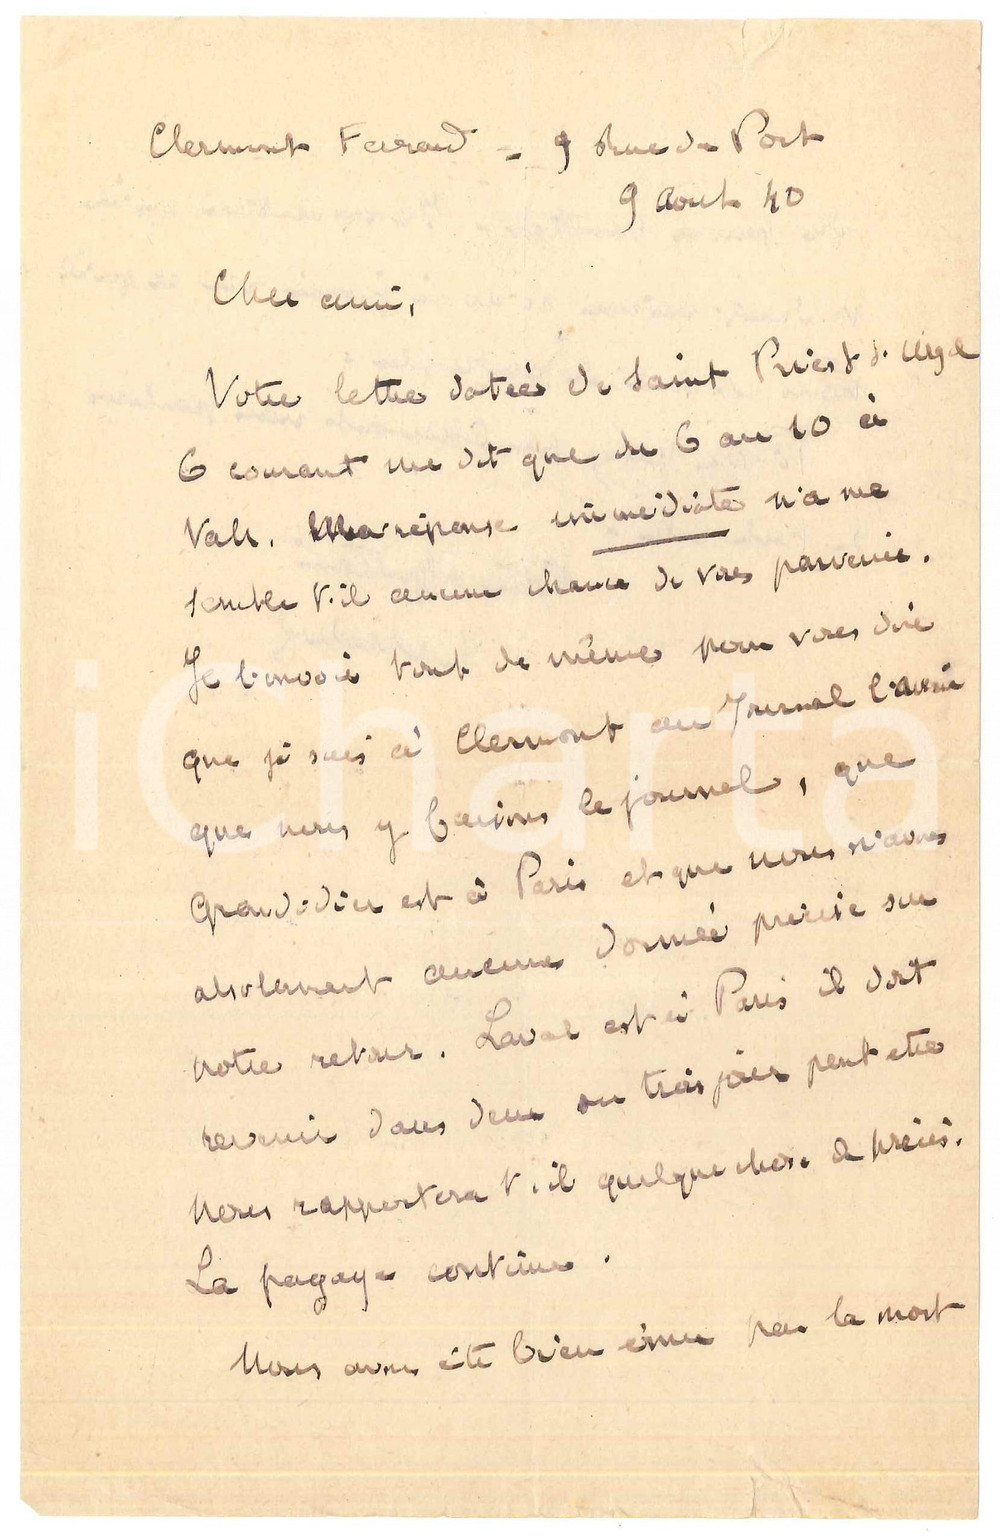 Clermont Ferrand - 9 Rue du Port
9 Aout 40
Cher ami,
Votre lettre datée de Saint Priest d.
6 courant me dit que du 6 au 10 à
Vals. Ma réponse immédiate n'a me
semble t-il aucune chance de vous parvenir.
Je l'envoie tout de même pour vous dire
que je suis à Clermont au Journal
que nous y faisons le journal, que
Grandidier est à Paris et que nous n'avons
absolument aucune donnée précise sur
notre retour. Laval est à Paris il doit
revenir dans deux ou trois jours peut etre
nous rapportera t-il quelque chose de précis.
La pagaye continue.
Nous avons été bien émus par la mort
iCharta